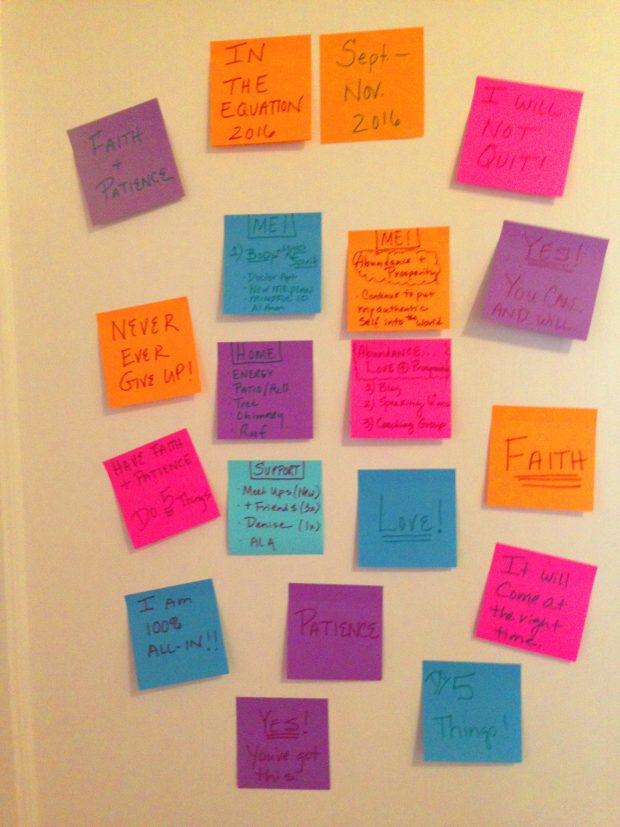 IN
THE
EQUATION
2016
Sept. –
Nov.
2016
I WILL
NOT
QUIT!
FAITH
+
PATIENCE
ME!
1) Body Mind Spirit
· Doctor Apt
· New
· MINDFUL
· Al Anon
ME!
Abundance +
Prosperity
· Continue to put
my authentic
self into the world
YES!
YOU CAN
AND WILL.
NEVER
EVER
GIVE UP!
HOME
· ENERGY
· PATIO/
· Tree
· Chimney
· Roof
Abundance...
Love
1) Blog
2) Speaking
3) Coaching Group
FAITH
HAVE FAITH
+ PATIENCE
DO 5 Things
SUPPORT
· Meet Ups (New)
· + Friends (3x)
· Denise (1x)
· ALA
LOVE!
It will
Come at
the right
time.
I Am
100%
ALL-IN!!
PATIENCE
5
Things!
YES!
You've got
this.